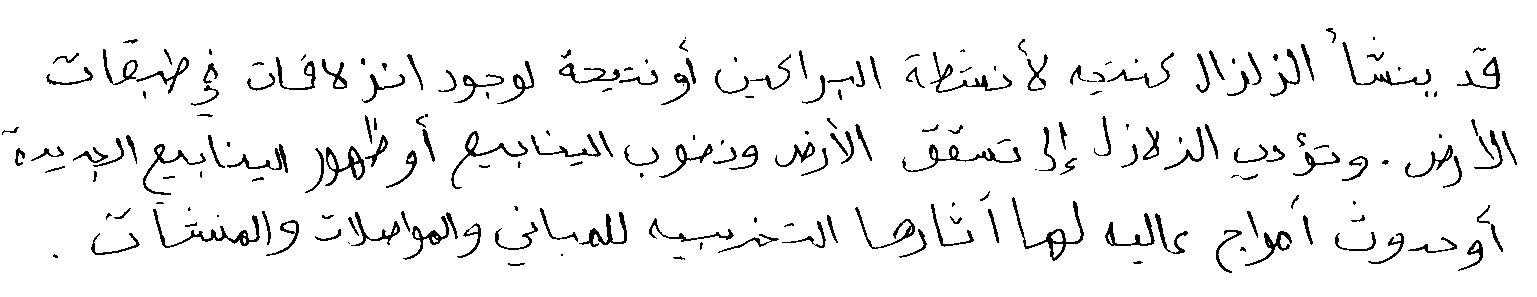 قد ينشأ الزلزال كنتيجه لأنشطة البراكين أو نتيجة لوجود انزلاقات في طبقات
الأرض . وتؤدي الزلازل إلى تشقق الأرض ونضوب الينابيع أو ظهور الينابيع الجديدة
أو حدوث أمواج عاليه لها أثارها التخريبيه للمباني والمواصلات والمنشآت .